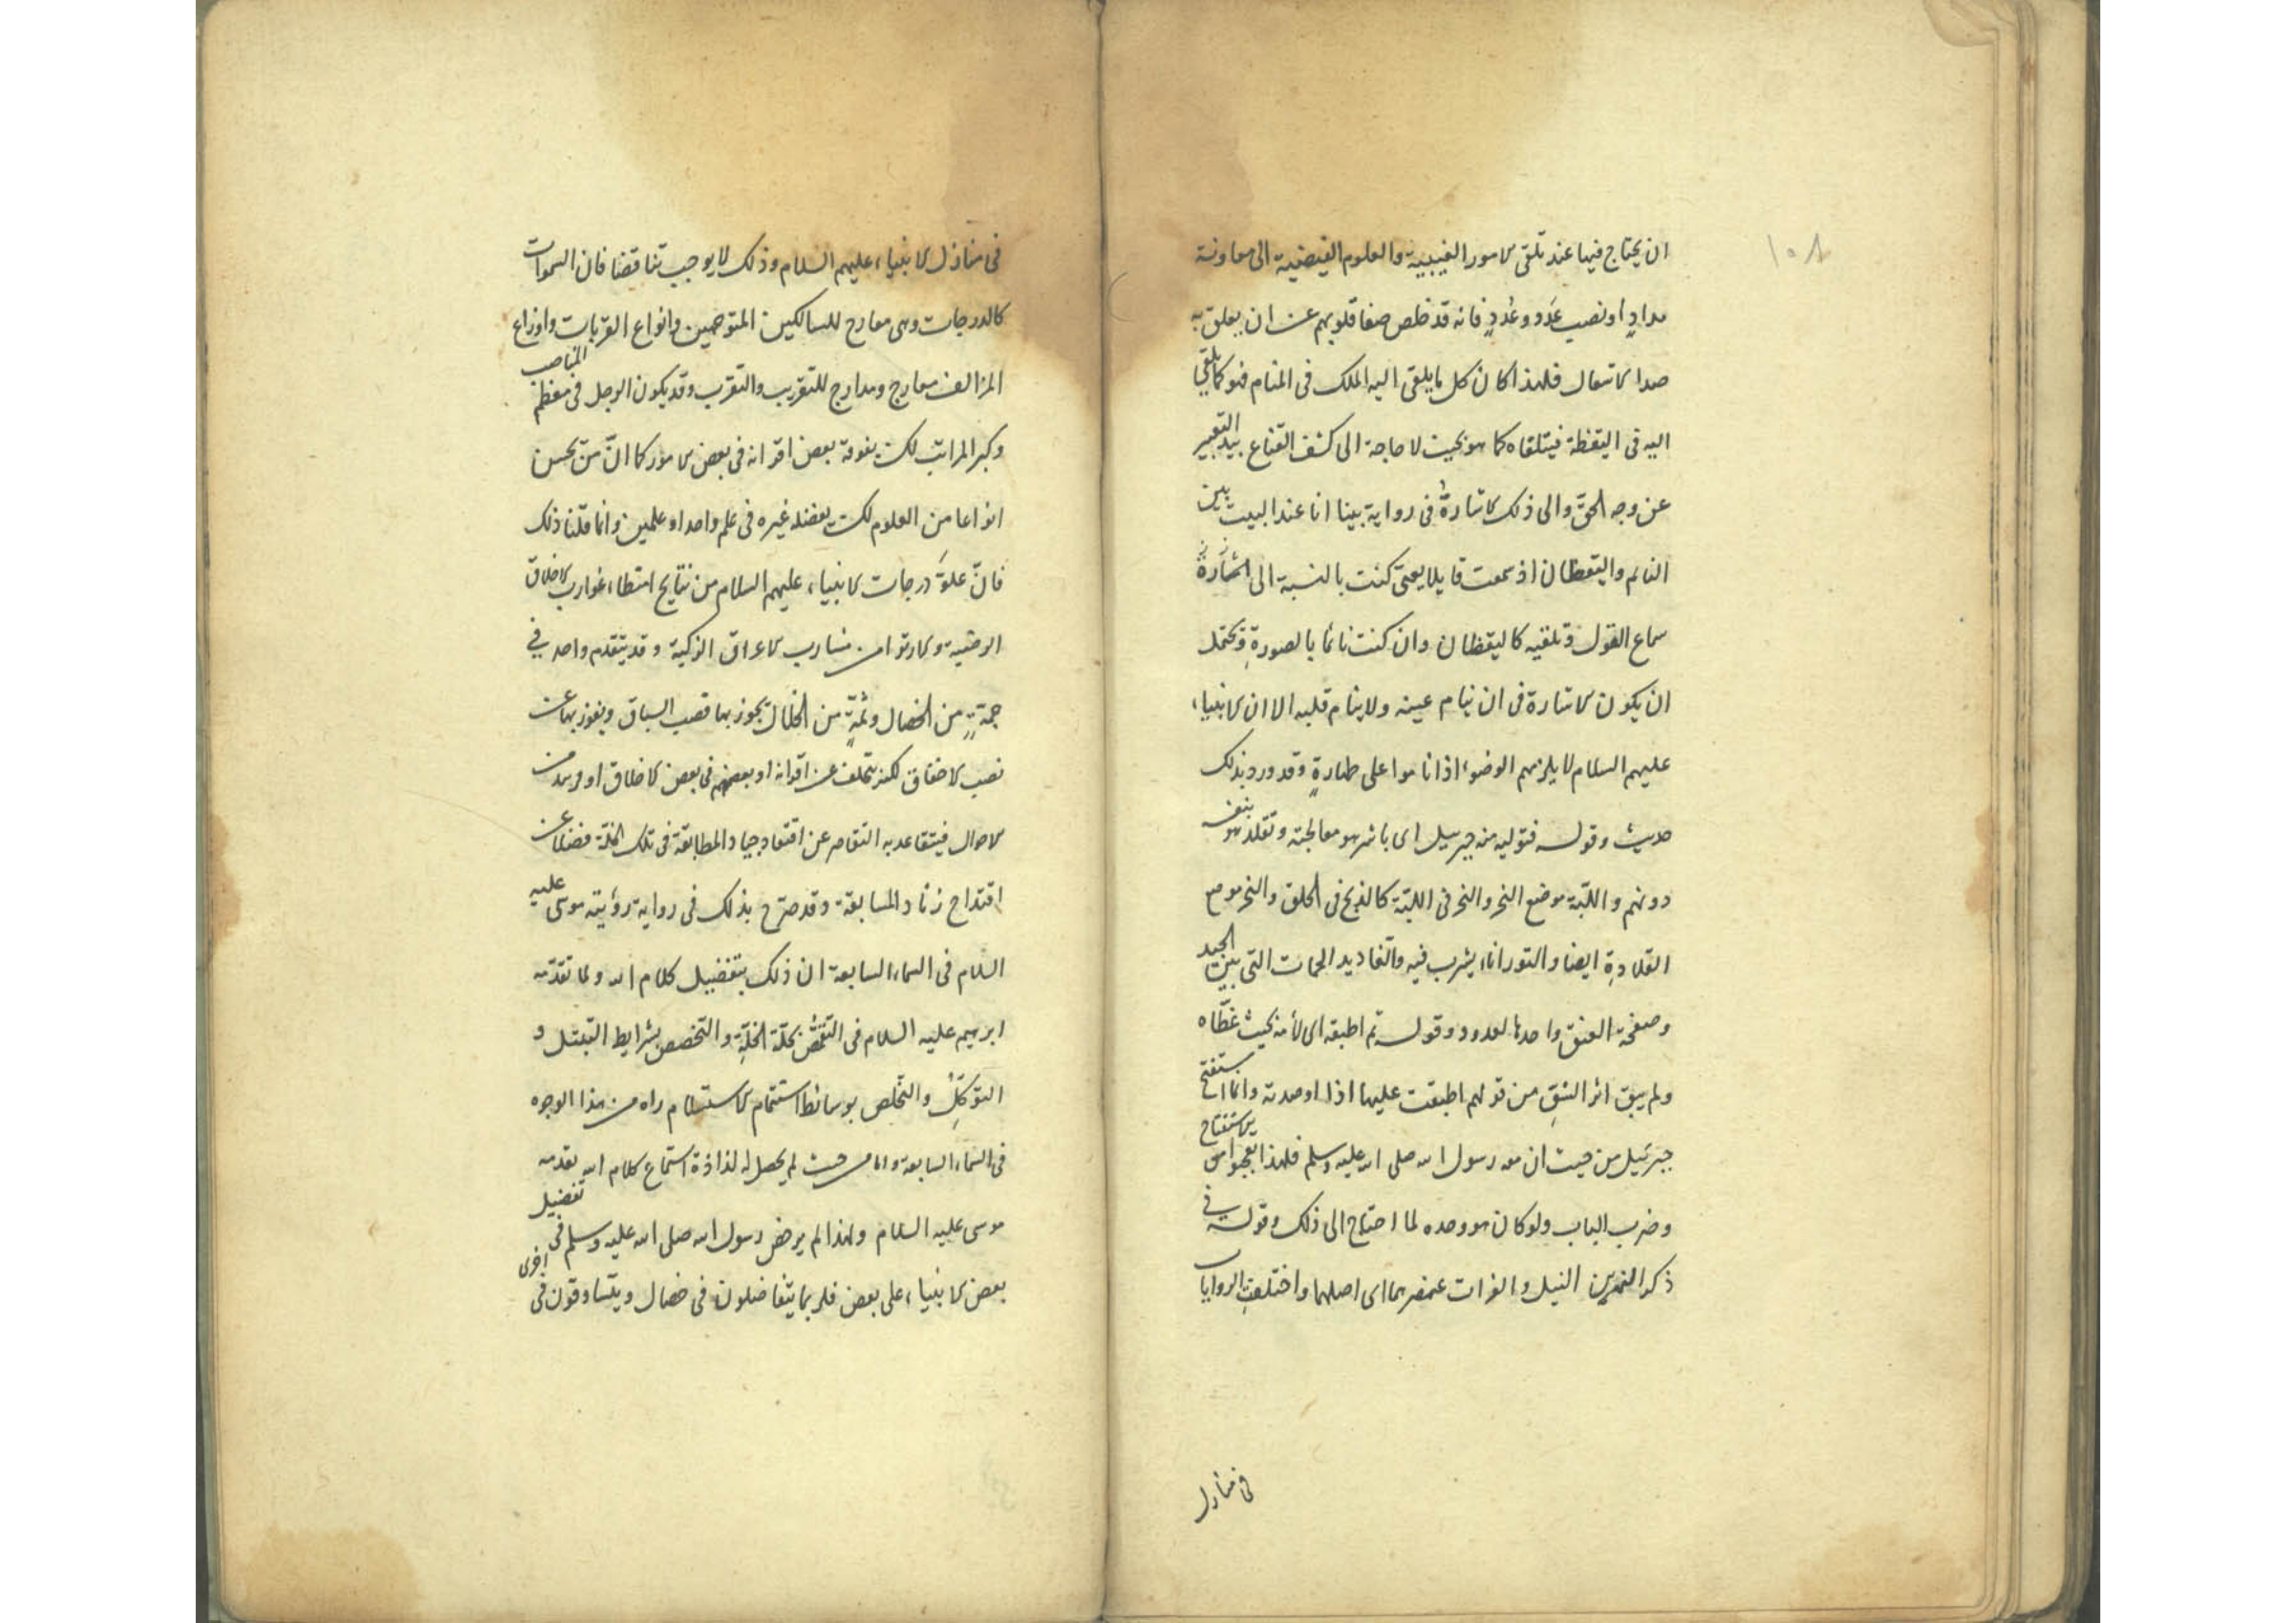 ١٠٨
ان يحتاج فيها عند تلقى الامور الغيبية والعلوم الفيضية الى معاونة
مدادٍ او نصيب عَدَد وعُددٍ فانه قد خلص صفا قلوبهم عن ان يعلق به
صدا الاشغال فلهذا كان كل ما يلقى اليه الملك فى المنام فهو كما يلقى
اليه فى اليقظة فيتلقاه كما هو بحيث لا حاجة الى كشف القناع بيد التعبير
عن وجه الحق والى ذلك الاشارة فى رواية بينا انا عند البيت بين
النائم واليقظان اذ سمعت قايلا يعنى كنت بالنسبة الى
سماع القول وتلقيه كاليقظان وان كنت نائما بالصورةِ ويحتمل
ان يكون الاشارة فى ان ينام عينه ولا ينام قلبه الا ان الانبياء
عليهم السلام لا يلزمهم الوضوء اذا ناموا على طهارةٍ وقد ورد بذلك
حديث وقوله فتوليه منه جبرييل اى باشر هو معالجته وتقلد هو بنفسه
دونهم واللبّة موضع النحر والنحر فى اللبّة كالذبح فى الحلق والنحر موضع
القلادةِ ايضا والتور اناء يشرب فيه والّغاديد اللحمات التى بين الجيد
وصفحة العنق واحدها لغدود وقوله ثم اطبقه اى لأمه بحيث غطّاه
ولم يبق اثر الشقِ من قولهم اطبقت عليها اذا اوصدته وانما استفتح
جبرئيل من حيث ان معه رسول الله صلى الله عليه وسلم فلهذا الاستفتاح
وضرب الباب ولو كان هو وحده لما احتاج الى ذلك وقوله فى
ذكر النهرين النيل والفرات عنصرهما اى اصلهما واختلفتِ الروايات
فى منازل
فى منازل الانبياء عليهم السلام وذلك لا يوجب تناقضا فان السموات
كالدرجات وهى معارج للسالكين المتوجهين وانواع القربات واوزاع
المزالف معارج ومدارج للتقريب والتقرب وقد يكون الرجل فى معظم المناصب
وكبر المراتب لكن يفوقه بعض اقرانه فى بعض الامور كما انّ من يحسن
انواعا من العلوم لكن يفضله غيره فى علم واحد او علمين وانما قلنا ذلك
فانّ علوَّ درجات الانبياء عليهم السلام من نتايج امتطاء غوارب الاخلاق
الرضية والارتواء من مشارب الاعراق الزكية وقد يتقدم واحد فى
جمةٍ من الخصال وثمةٍ من الخلال يحوز بها قصب السباق ويفوز بها عن
نصب الاخفاق لكنه يتخلف عن اقرانه او بعضهم فى بعض الاخلاق او فريد من
الاحوال فيتقاعد به التقاصر عن اقتعاد جياد المطابقة فى تلك الخلّة فضلا عن
اقتداح زناد المسابقة وقد صرّح بذلك فى رواية رؤيته موسى عليه
السلام فى السماء السابعة ان ذلك بتفضيل كلام الله ولما تقدّمه
ابرهيم عليه السلام فى التقمّص بحلّة الخلّةِ والتخصص بشرايط التبتل و
التوكّلِ والتخلص بوسائط استتمام الاستسلام راه من هذا الوجوه
فى السماء السابعة واما من حيث لم يحصل له لذاذة استماع كلام الله تقدمه
موسى عليه السلام ولهذا لم يرض رسول الله صلى الله عليه وسلم فى تفضيل
بعض الانبياء على بعض فلربما يتفاضلون فى خصال ويتساوقون فى اخرى